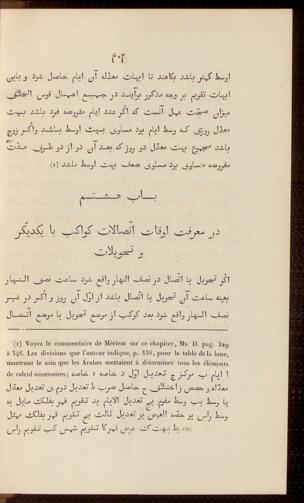 ۴۰۲
اوسط کمتر باشد بکاهند تا ابهات معدّله آن ایام حاصل شود و باین
ابهات تقویم بر وجه مذکور برآیند در جمیع اعمال قوس اختلافی
میزان صحّت عمل آنست که اگر عدد ایام مفروضه فرد باشد بهت
معدّل روزی که وسط ایام بود مساوی بهت اوسط باشد واگر زوج
باشد مجموع بهت معدّل دو روز که بعد آن دو از دو طرف مدّت
مفروضه متساوی بود مساوی ضعف بهت اوسط باشد (1)
باب هشتم
در معرفت اوقات اتّصالات کواکب با یکدیگر
و تحویلات
اگر تحویل یا اتّصال در نصف النهار واقع شود ساعت نصف النهار
بعینه ساعت آن تحویل یا اتّصال باشد از اوّل آن روز و اگر در غیر
نصف النهار واقع شود بعد کوکب از موضع تحویل یا موضع اتّصال
(1) Voyez le commentaire de Mériem sur ce chapitre, Ms. D. pag. 329
à 346. Les divisions que l'auteur indique, p. 336, pour la table de la lune,
montrent le soin que les Arabes mettaient à déterminer tous les éléments
de calcul nécessaires; ا ایام ب مرکز ج تعدیل اوّل د خاصه ه خاصه
معدّله و حصص ز اختلاف ح حاصل ضرب ط تعدیل دوم ی تعدیل معدّل
یا وسط یب وسط مقوم یج تعدیل الایام ید تقویم قمر بفلک مایل یه
وسط راس یو حصّه العرض یز تعدیل ثالث یح تقویم قمر بفلک ممثل
یط بهت ک عرض قمر کا تقویم شمس کب تقویم راس etc.